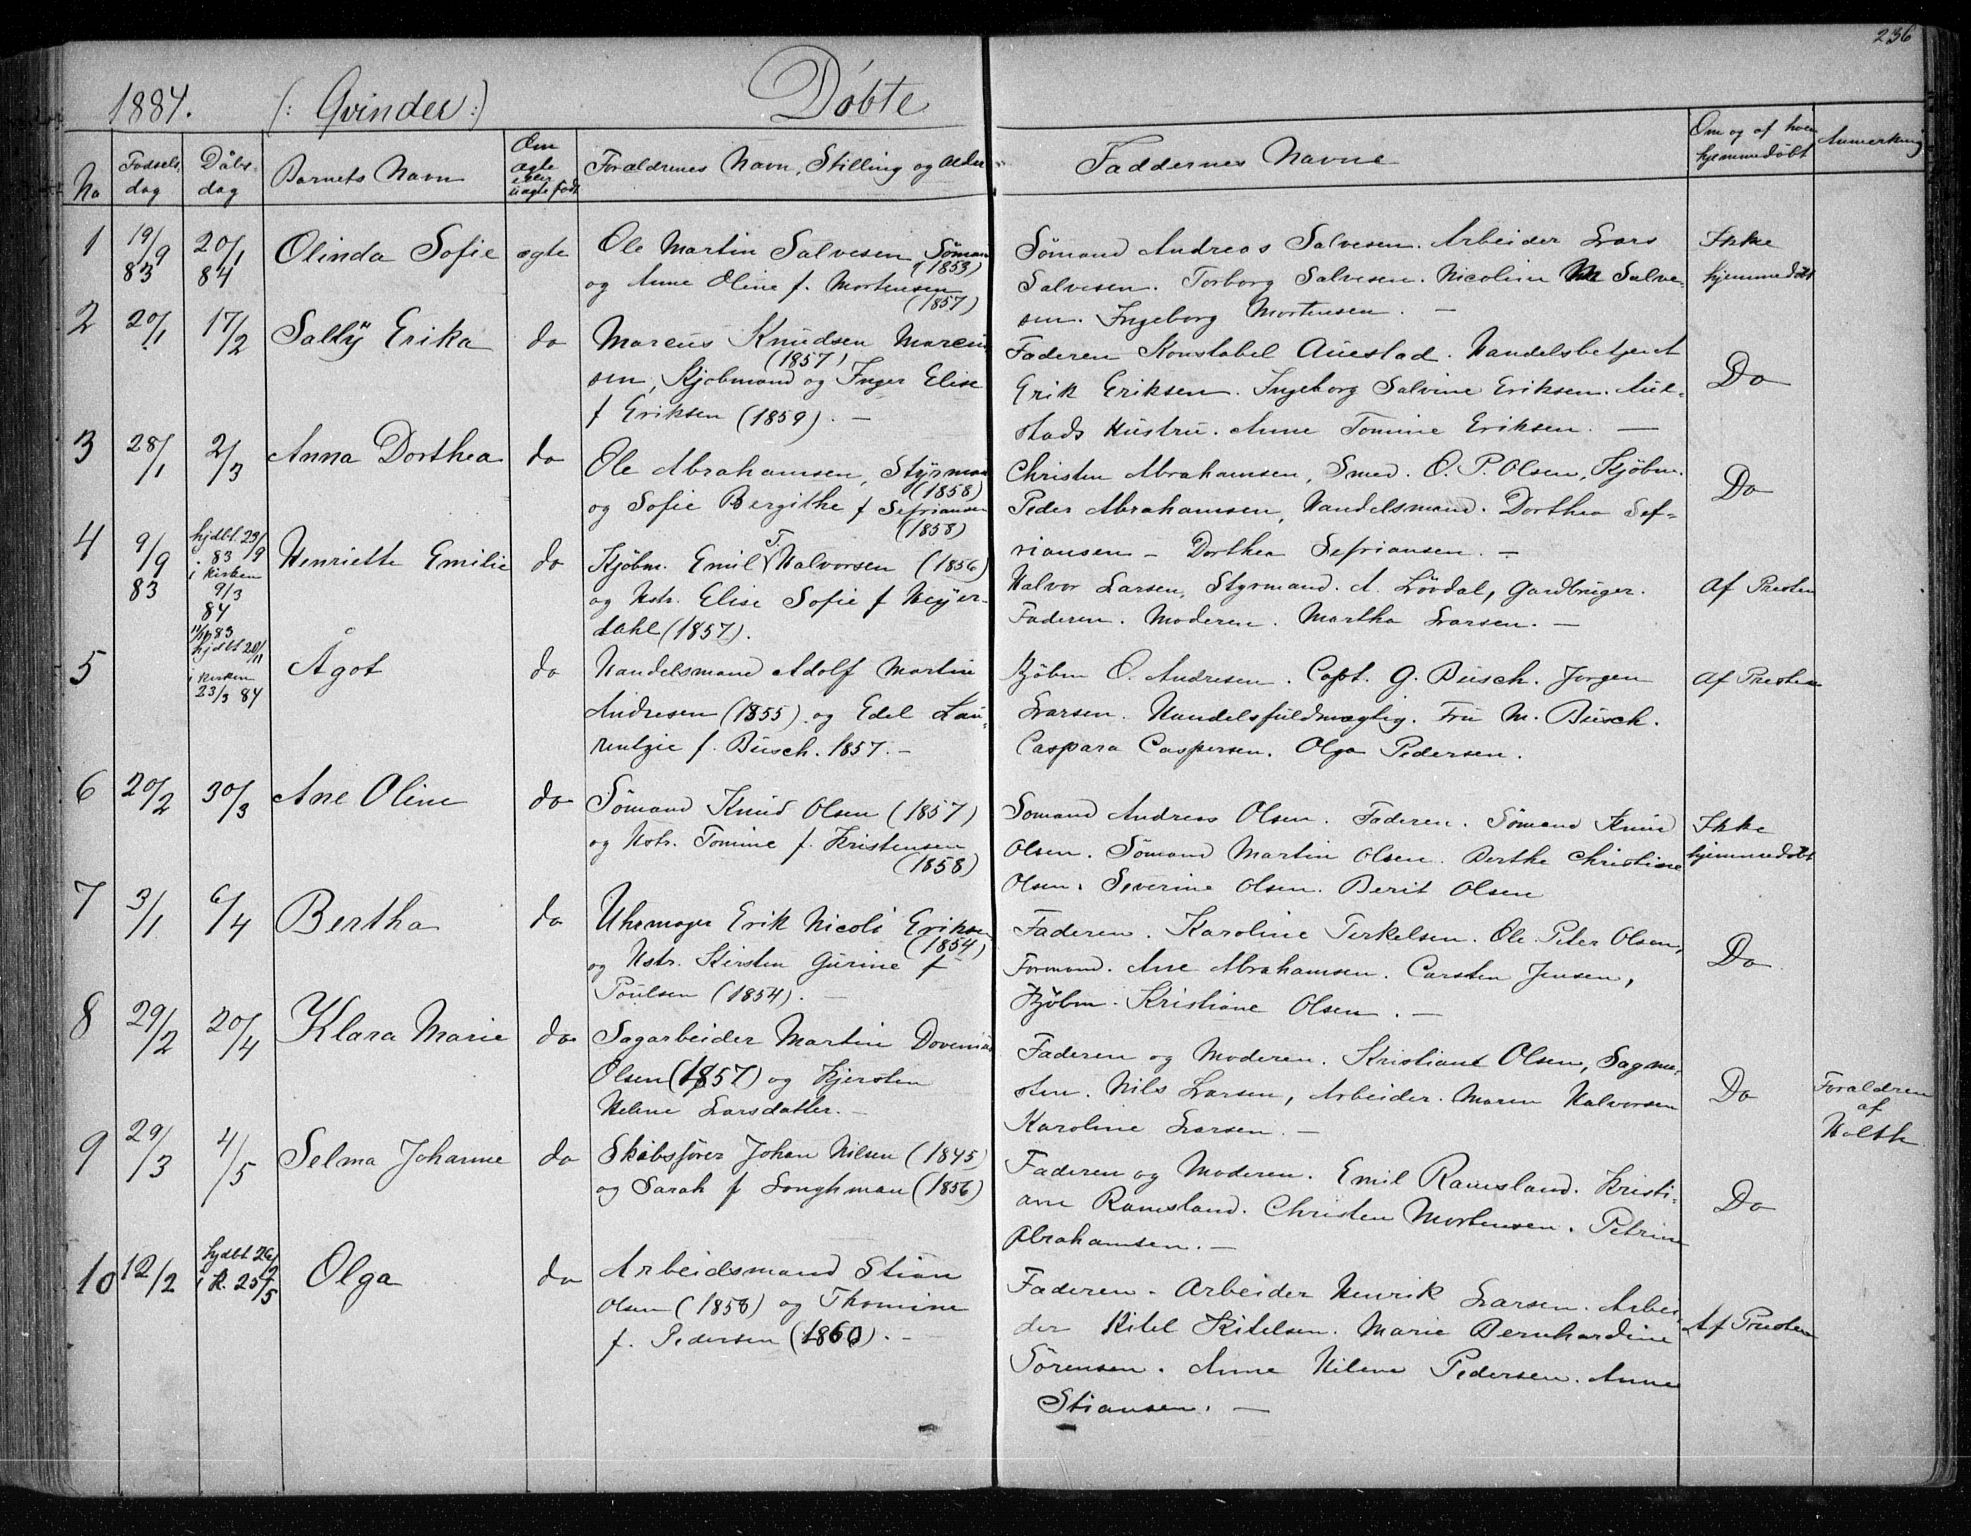 236
1884. (: Qvinder :) Döbte
No
Födsels-
dag
Dåbs-
dag
Barnets Navn
Om
ægte
eller
uægte född
Forældrenes Navn, Stilling og Alder
Faddernes Navne
Om og af hvem
hjemmedöbt
Anmerkning
1
19/9
83
20/1
84
Olinda Sofie
ægte
Ole Martin Salvesen Söman
(1853)
og Anne Oline f. Mortensen
(1857)
Sömand Andreas Salvesen. Arbeider Lars
Salvesen. Torborg Salvesen. Nicoline M Salve-
sen. Ingeborg Mortensen. —
Ikke
hjemmedöbt
2
20/1
17/2
Sally Erika
do
Marcus Knudsen Marcus
(1857)
sen, Kjöbmand og Inger Elise
f Eriksen (1859). —
Faderen Konstabel Auestad. Handelsbetjent
Erik Eriksen. Ingeborg Salvine Eriksen. Aue-
stads Hustru. Anne Tomine Eriksen. —
Do
3
28/1
2/3
Anna Dorthea
do
Ole Abrahamsen, Styrman
(1858)
og Sofie Bergithe f Sefriansen
(1858)
Christen Abrahamsen, Smed. O. P. Olsen, Kjöbm.
Peder Abrahamsen, Handelsmand. Dorthea Sef-
riansen – Dorthea Sefriansen. —
Do
4
9/9
83
hjdbt 23/9
83
i Kirken
9/3
84
Henriette Emilie
do
Kjöbm. Emil T. Halvorsen (1856)
og Hstr. Elise Sofie f Heyer-
dahl (1857).
Halvor Larsen, Styrmand. A. Lövdal, Gardbruger.
Faderen. Moderen. Martha Larsen. —
Af Presten
5
83
hjdbt 20/11
i Kirken
23/3 84
Ågot
do
Handelsmand Adolf Martin
Andresen (1855) og Edel Lau-
rentzie f. Busch. 1857. —
Kjöbm O. Andresen. Capt. G. Busch. Jørgen
Larsen. Handelsfuldmægtig. Fru M. Busch.
Caspara Caspersen. Olga Pedersen.
Af Presten
6
20/2
30/3
Ane Oline
do
Sömand Knud Olsen (1857)
og Hstr. Tomine f. Kristensen
(1858)
Sömand Andreas Olsen. Faderen. Sömand Knud
Olsen. Sömand Martin Olsen. Berthe Christine
Olsen. Severine Olsen. Berit Olsen
Ikke
hjemmedöbt
7
3/1
6/4
Bertha
do
Uhrmager Erik Nicoli Eriksen
(1854)
og Hstr. Kirsten Gurine f
Poulsen (1854). —
Faderen. Karoline Terkelsen. Ole Peter Olsen,
Formand. Ane Abrahamsen. Carsten Jensen,
Kjöbm. Kristiane Olsen. —
Do
8
29/2
20/4
Klara Marie
do
Sagarbeider Martin
Olsen (1857) og Kjersten
Helene Larsdatter. —
Faderen og Moderen. Kristiant Olsen, Sagme-
sten. Nils Larsen, Arbeider. Maren Halvorsen
Karoline Larsen. —
Do
Forældren
af
Holth
9
29/3
4/5
Selma Johanne
do
Skibsförer Johan Nilsen (1845)
og Sarah f Longhman (1856)
Faderen og Moderen. Emil Ramsland. Kristi-
ane Ramsland. Christen Mortensen. Petrine
Abrahamsen. —
Do
10
12/2
hjdbt 26/2
i K. 25/5
Olga
do
Arbeidsmand Stian
Olsen (1858) og Thomine
f. Pedersen (1860). —
Faderen. Arbeider Henrik Larsen. Arbei-
der Kitel Kitelsen. Marie Bernhardine
Sörensen. Anne Hilene Pedersen. Anne
Stiansen. —
Af Presten